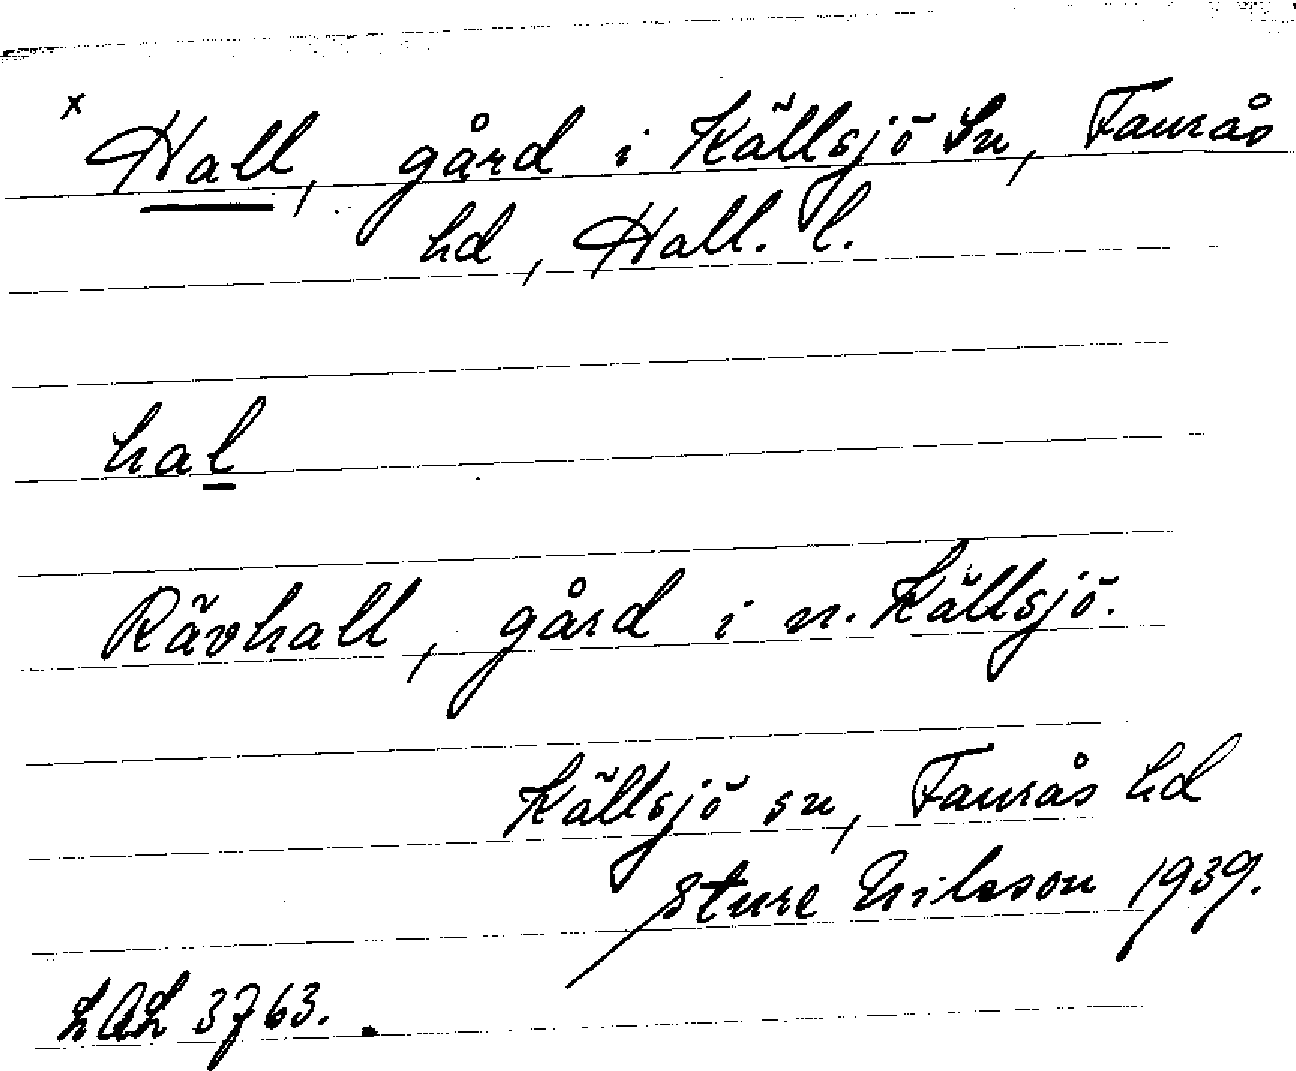 x Hall, gård i Källsjö Sn, Faurås
hd, Hall. l.
hal
Rävhall, gård i n. Källsjö.
Källsjö sn, Faurås hd
Sture Nilsson 1939.
LAL 3763.